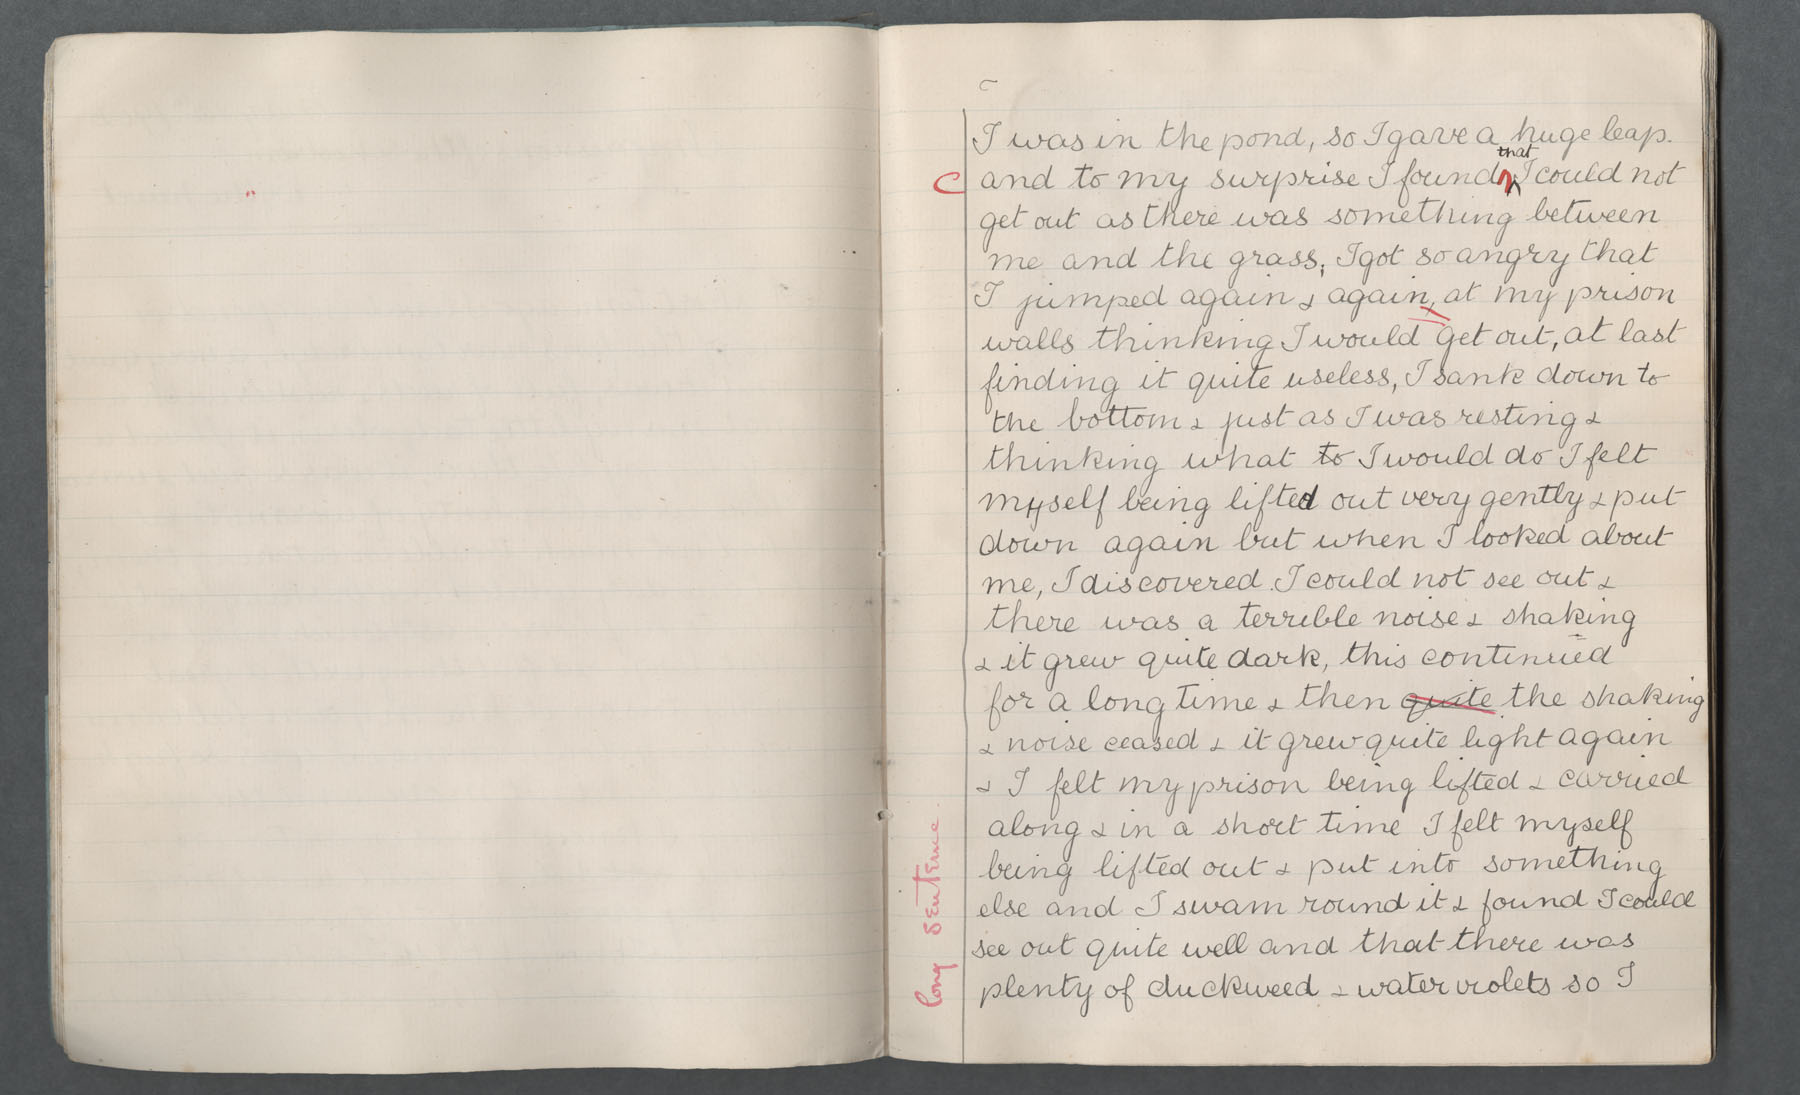 I was in the pond, so I gave a huge leap.
that
C
and to my surprise I found I could not
get out as there was something between
me and the grass; I got so angry that
I jumped again & again, at my prison
walls thinking I would get out, at last
finding it quite useless, I sank down to
the bottom & just as I was resting &
thinking what to I would do I felt
myself being lifted out very gently & put
down again but when I looked about
me, I discovered I could not see out &
there was a terrible noise & shaking
& it grew quite dark, this continued
for a long time & then quite the shaking
& noise ceased & it grew quite light again
& I felt my prison being lifted & carried
along & in a short time I felt myself
being lifted out & put into something
else and I swam round it & found I could
see out quite well and that there was
plenty of duckweed & water violets so I
long sentence